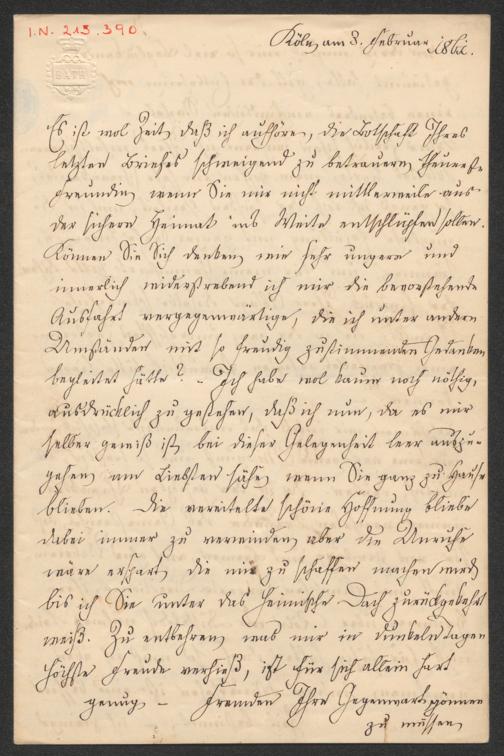 I.N. 213.390.
BATH
Köln, am 8. Februar 1861.
Es ist wol Zeit, daß ich aufhöre, die Botschaft Ihres
letzten Briefes schweigend zu betrauern, theuerste
Freundin, wenn Sie mir nicht mittlerweile aus
der sichern Heimat ins Weite entschlüpfen sollen.
Können Sie Sich denken, wie sehr ungern und
innerlich widerstrebend ich mir die bevorstehende
Ausfahrt vergegenwärtige, die ich unter andern
Umständen mit so freudig zustimmenden Gedanken
begleitet hätte? – Ich habe wol kaum noch nöthig,
ausdrücklich zu gestehen, daß ich nun, da es mir
selber gewiß ist, bei dieser Gelegenheit leer auszu-
gehen, am Liebsten sähe, wenn Sie ganz zu Hause
blieben. Die vereitelte schöne Hoffnung bliebe
dabei immer zu verwinden, aber die Unruhe
wäre erspart, die mir zu schaffen machen wird,
bis ich Sie unter das heimische Dach zurückgekehrt
weiß. Zu entbehren, was mir in dunkeln Tagen
höchste Freude verhieß, ist für sich allein hart
genug – Fremden Ihre Gegenwart gönnen
zu müssen,